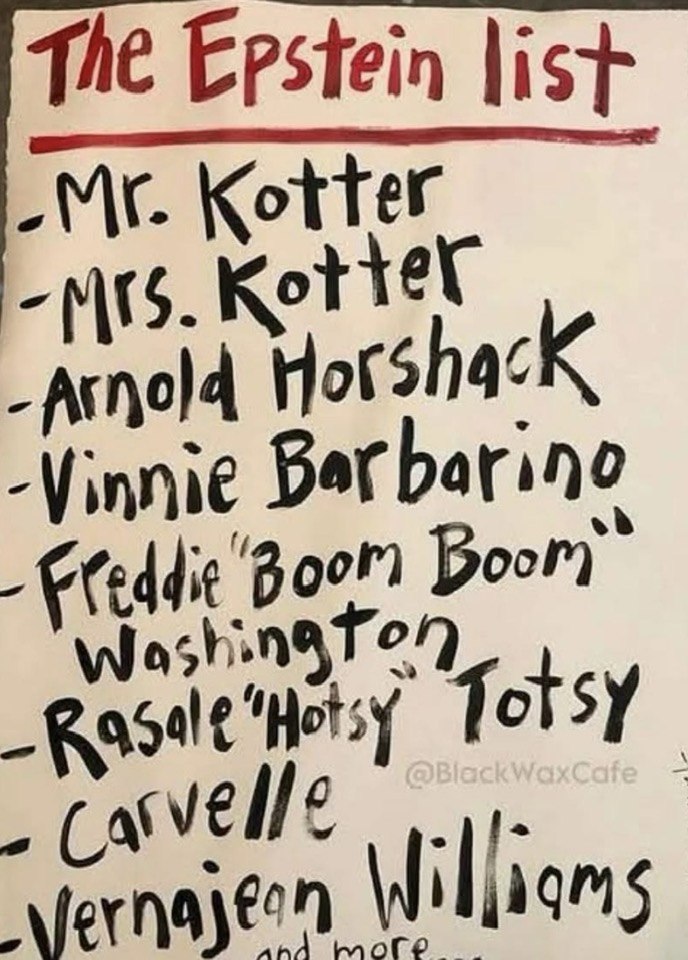 The Epstein list
-Mr. Kotter
-Mrs. Kotter
-Arnold Horshack
-Vinnie Barbarino
-Freddie "Boom Boom"
Washington
-Rasale "Hotsy" Totsy
@BlackWaxCafe
- Carvelle
-Vernajean Williams
and more...